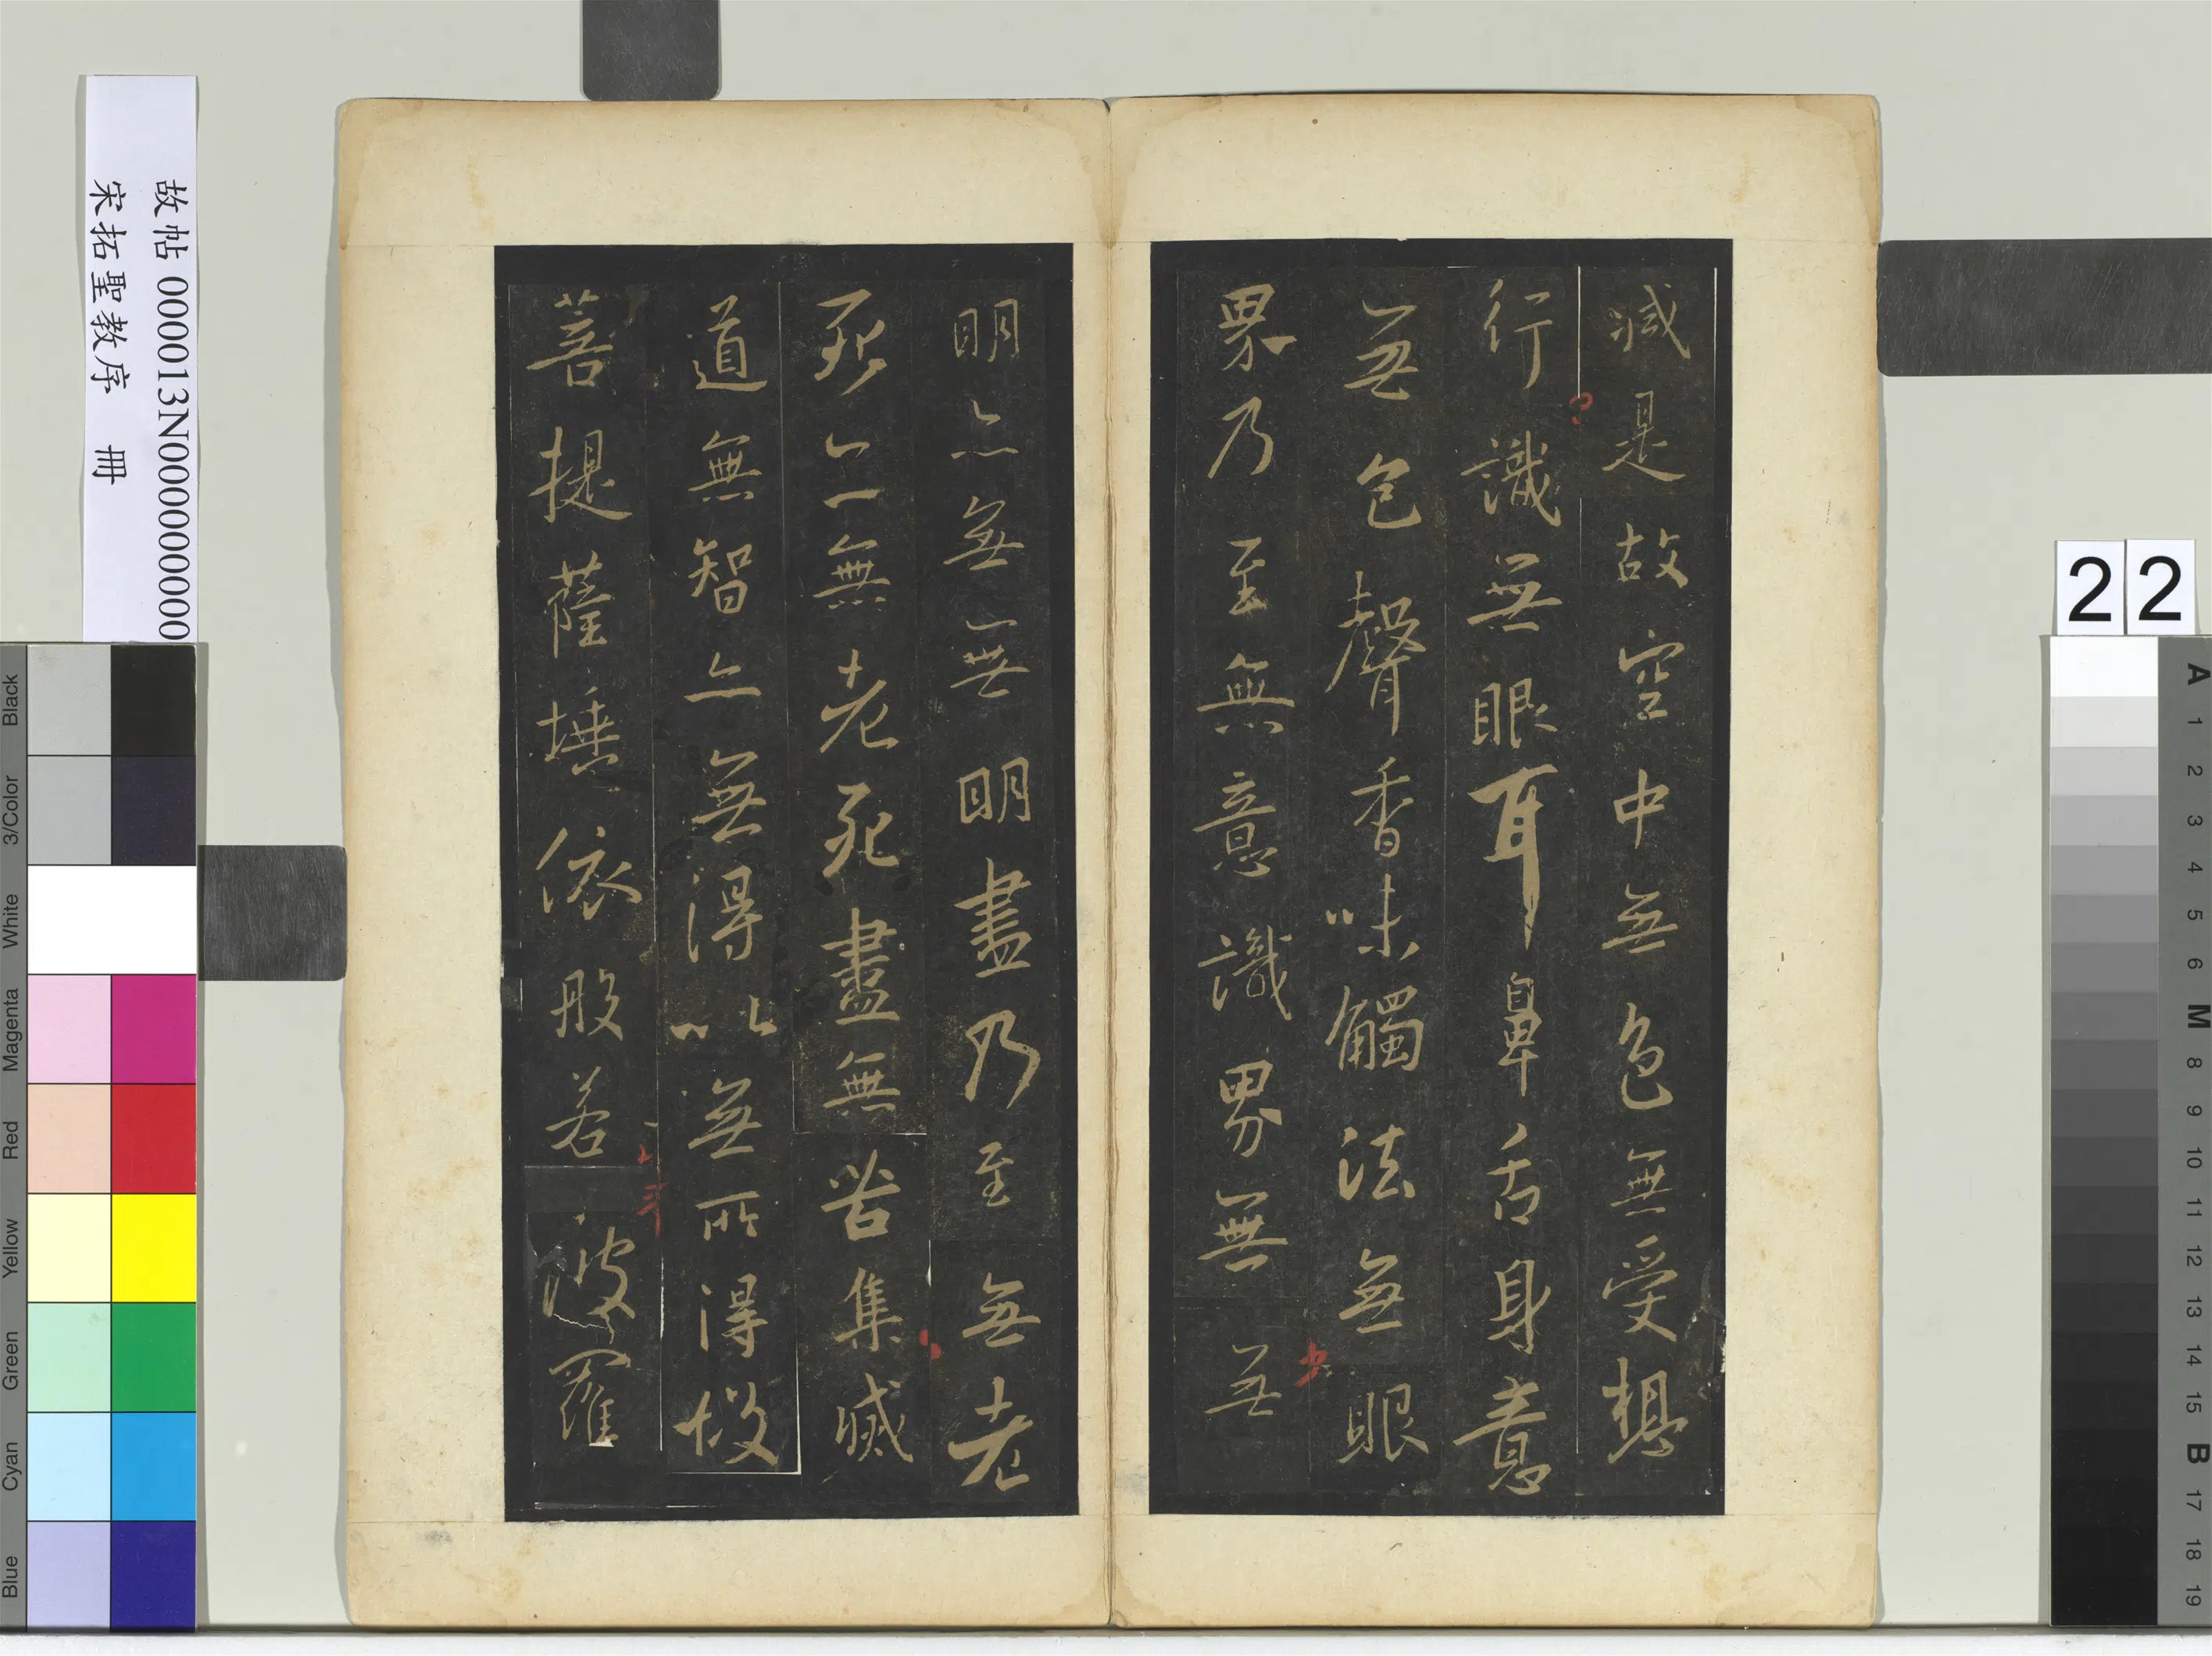 減是故空中無色無受想
行識無眼耳鼻舌身意
無色聲香味觸法無眼
界乃至無意識界無無
明亦無無明盡乃至無老
死亦無老死盡無苦集滅
道無智亦無得以無所得故
菩提薩埵依般若波羅
故帖 000013N000000000
宋拓聖教序 冊
22
Black
3/Color
White
Magenta
Red
Yellow
Green
Cyan
Blue
A
1
2
3
4
5
6
M
8
9
10
11
12
13
14
15
B
17
18
19